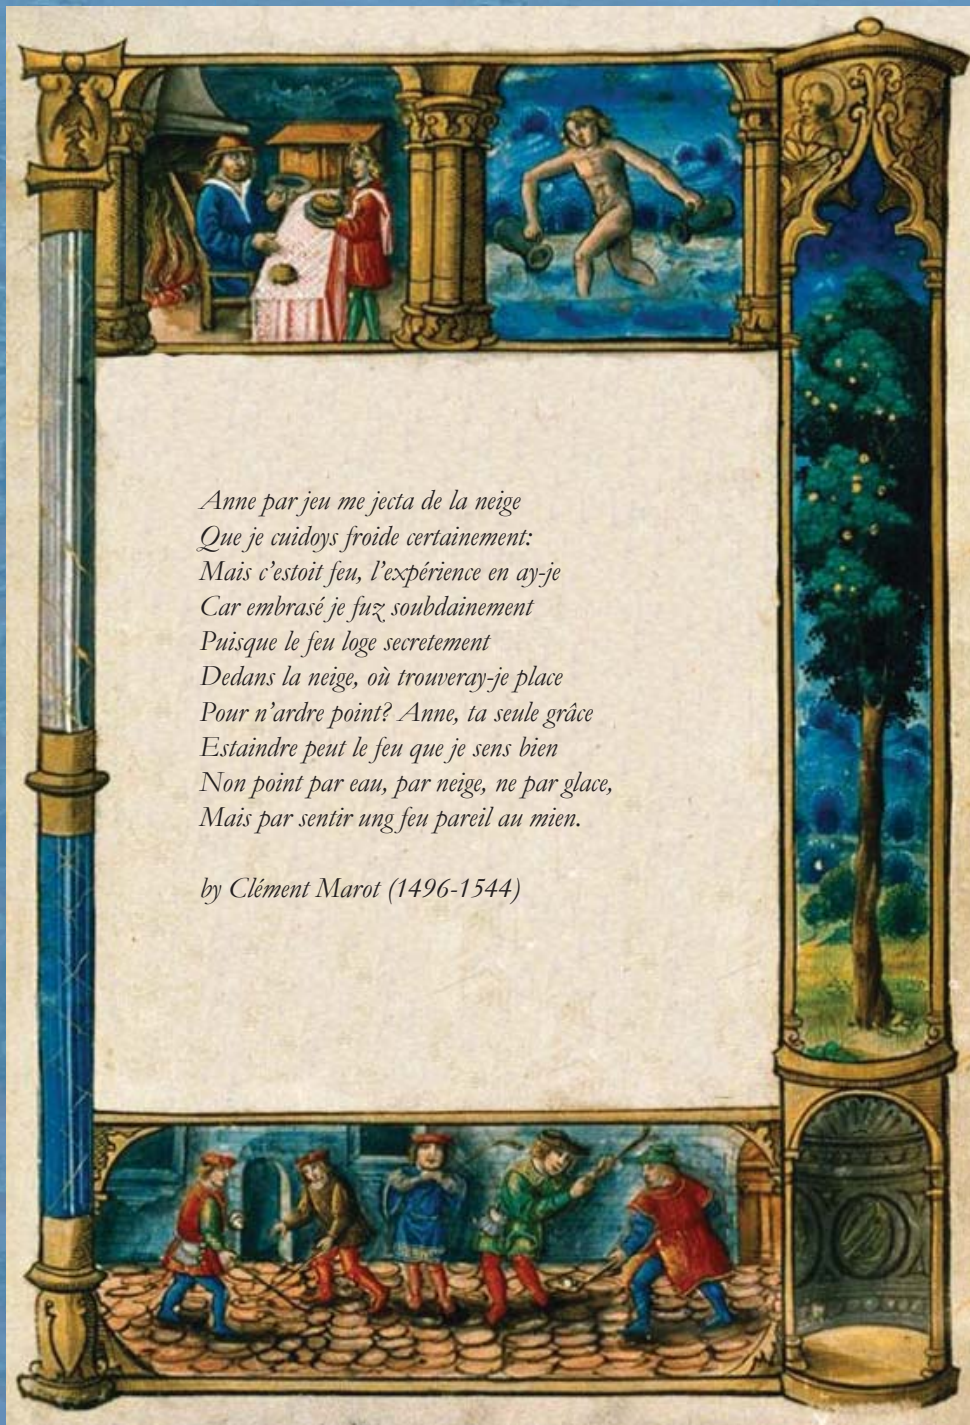 Anne par jeu me jecta de la neige
Que je cuidoys froide certainement:
Mais c'estoit feu, l'expérience en ay-je
Car embrasé je fuz soubdainement
Puisque le feu loge secretement
Dedans la neige, où trouveray-je place
Pour n'ardre point? Anne, ta seule grâce
Estaindre peut le feu que je sens bien
Non point par eau, par neige, ne par glace,
Mais par sentir ung feu pareil au mien.
by Clément Marot (1496-1544)